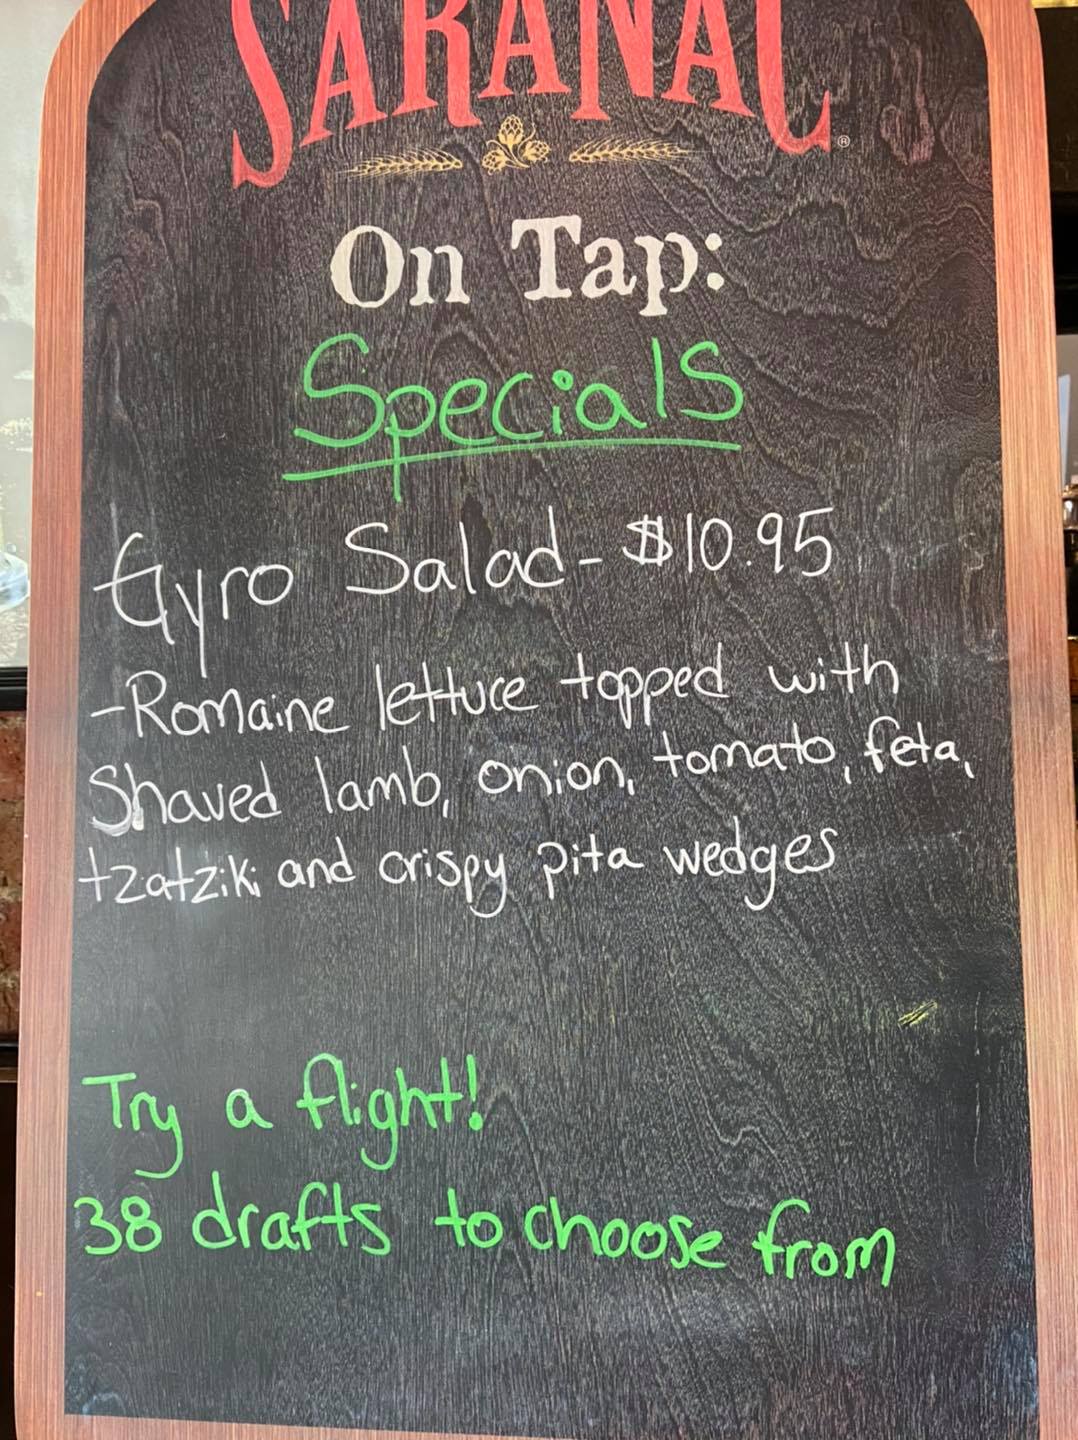 SARANAC
®
On Tap:
Specials
Gyro Salad - $10.95
-Romaine lettuce topped with
Shaved lamb, onion, tomato, feta,
tzatziki and crispy pita wedges
Try a flight!
38 drafts to choose from